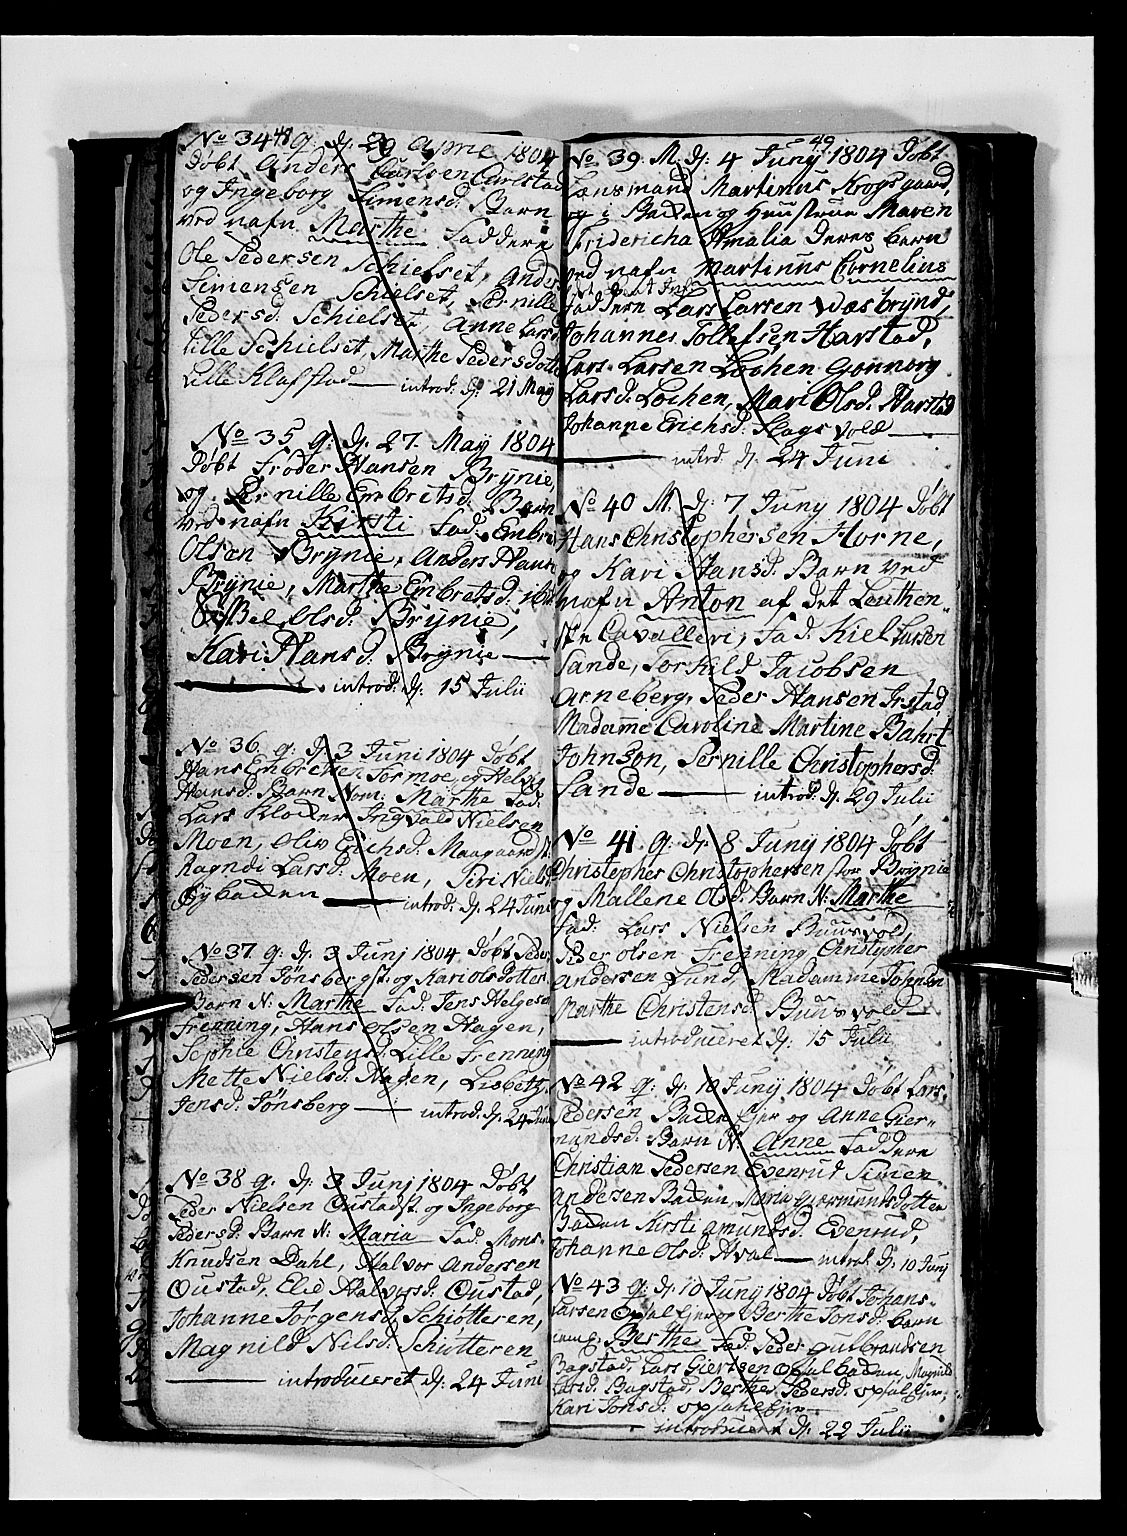 48
No 34 q: dj: 29 April 1804
Døbt Anders Carlsen Carlstad
og Ingeborg Simensd: Barn
ved nafn Marthe Faddere
Ole Pedersen Schielset, Anders
Simensen Schielset, Pernille
Pedersd: Schielset, Anne Larsd
Lille Schielset, Marthe Pedersdotter
Lille Klafstad introd: dj: 21 May
No 35 q: dj: 27. May 1804
Døbt Froder Hansen Brÿnie,
og Pernille Embretsd: Barn
ved nafn Kirsti Fad: Embret
Olsen Brÿnie, Anders Hansen
Brÿnie, Marthe Embretsd: ibid
Sibel Olsd: Brÿnie,
Kari Hansd: Brÿnie
introd: dj: 15 Julii
No 36. q: dj: 3 Juni 1804 Døbt
Hans Embretsen Tormoe og Helvig
Hansd: Barn Nom: Marthe Fad:
Lars Klocker Trigvold Nielsen
Moen, Oliv Erichsd: Maagaard
Ragndi Larsd: Moen, Siri Nielsd
Bÿbaden introd: dj: 24 Juni
No 37 q: dj: 3 Junj 1804. Døbt Peder
Pedersen Tønsberg og Kari Olsdotter
Barn N: Marthe Fad: Jens Helgesen
Frenning, Hans Olsen Hagen,
Sophie Christensd: Lille Frenning
Mette Nielsd: Hagen, Lisbeth
Jensd: Tønsberg introd: dj: 24 Juni
No 38 q: dj: 3 Junj 1804 Døbt
Peder Nielsen Oustad og Ingeborg
Pedersd: Barn N: Maria Fad: Mons
Knudsen Dahl, Halvor Andersen
Oustad, Elie Halvorsd: Oustad,
Johanne Jørgensd: Schiøtteren,
Magnild Nilsd: Schiøtteren
introduceret dj: 24 Juni
49
No 39. M. dj: 4 Junÿ 1804 Døbt
Lænsmand Martinus Krogsgaard,
og i Baden og Huustrue Maren
Fridericha Amalia deres barn
ved nafn Martinus Cornelius
Faddere Lars Larsen Wæsbrÿnd,
Johannes Tollefsen Harstad,
Lars Larsen Lochen Gonnorg
Larsd: Lochen, Mari Olsd: Harstad
Johanne Erichsd: Slagsvold
introd: dj: 24 Juni
No 40 M. dj: 7 Junÿ 1804 Døbt
Hans Christophersen Horne,
og Kari Hansd: Barn ved
nafn Anton af det Leuthen-
ske Cavalleri, Fad: Kiel Larsen
Sande, Torkild Jacobsen
Arneberg, Peder Hansen Irstad
Madame Caroline Martine Bahrt
Johnson, Pernille Christophersd:
Sande introd: dj: 29 Julii
No 41. q: dj: 8 Junÿ 1804 Døbt
Christopher Christophersen stor Brÿnie
og Mallene Olsd: Barn N: Marthe
Fad: Lars Nielsen Buusvold,
Peder Olsen Frenning, Christopher
Andersen Lund, Madamme Johnsen
Marthe Christensd: Buusvold
introduceret dj: 15 Julii
No 42 q: dj: 10 Junÿ 1804 Døbt Lars
Pedersen Baden Ejer og Anne Gier-
mundsd: Barn N: Anne Faddere
Christian Pedersen Evenrud Simen
Andersen Baden, Maria Giermundsdotter
Baden Kirsti Amundsd: Evenrud,
Johanne Olsd: Hval introd: dj: 10 Junÿ
No 43 q: dj: 10 Junÿ 1804 Døbt Johans
Larsen Opsal Ejer og Berthe Jonsd: barn
Berthe Fad: Peder Gulbrandsen
Bagstad, Lars Giertsen Opsal baden, Magnild
Larsd: Bagstad, Berthe Pedersd: Opsal Ejer,
Kari Jonsd: Opsahl Ejer
introduceret dj: 22 Julii